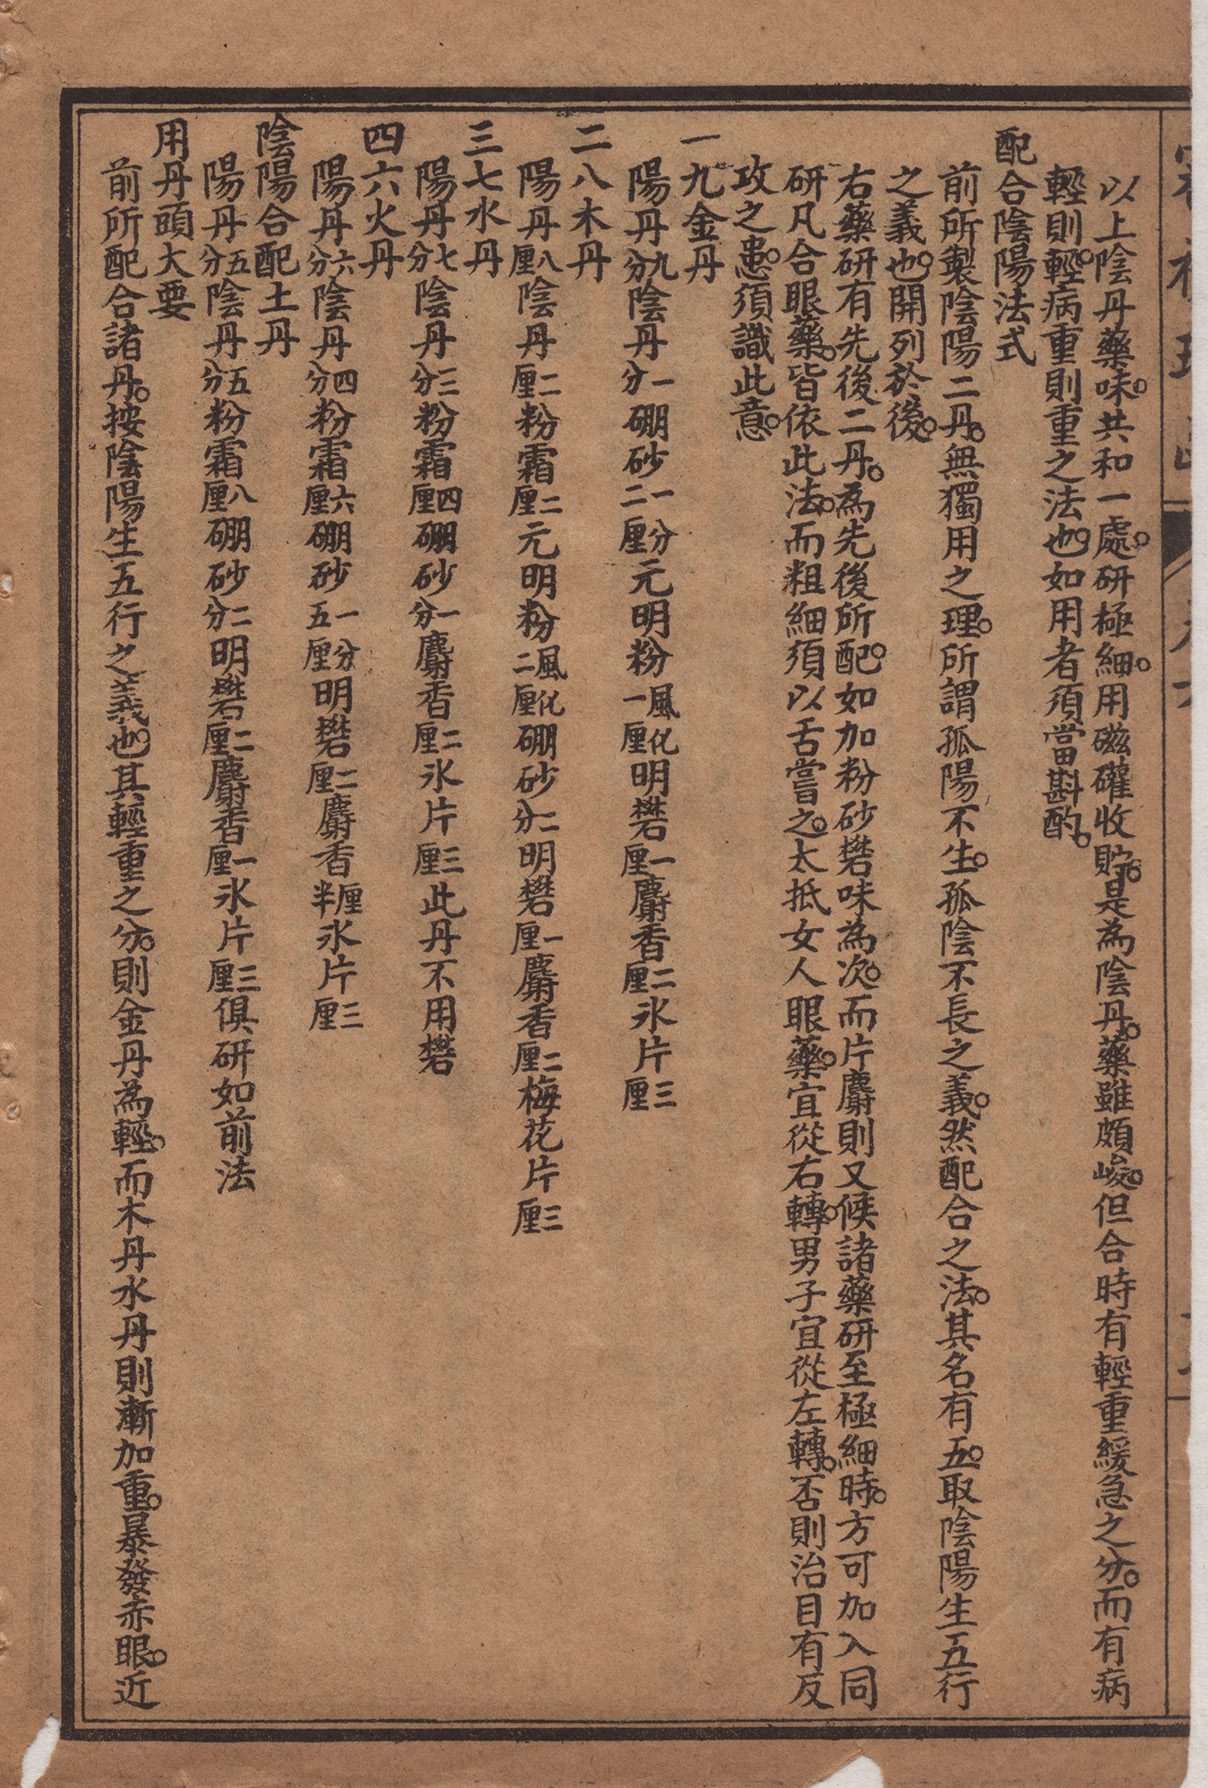 以上陰丹藥味。共和一處。研極細。用磁礶收貯。是為陰丹。藥雖頗峻。但合時有輕重緩急之分。而有病
輕則輕。病重則重之法也。如用者須當斟酌。
配合陰陽法式
前所製陰陽二丹。無獨用之理。所謂孤陽不生。孤陰不長之義。然配合之法。其名有五。取陰陽生五行
之義也。開列於後。
右藥研有先後二丹。為先後所配。如加粉砂礬味為次。而片麝則又候諸藥研至極細時。方可加入同
研凡合眼藥。皆依此法。而粗細須以舌嘗之。太抵女人眼藥。宜從右轉。男子宜從左轉。否則治目有反
攻之患。須識此意。
一九金丹
陽丹九分陰丹一分硼砂一分二厘元明粉風化一厘明礬一厘麝香二厘氷片三厘
二八木丹
陽丹八厘陰丹二厘粉霜二厘元明粉風化二厘硼砂二分明礬一厘麝香二厘梅花片三厘
三七水丹
陽丹七分陰丹三分粉霜四厘硼砂一分麝香二厘氷片三厘此丹不用礬
四六火丹
陽丹六分陰丹四分粉霜六厘硼砂一分五厘明礬二厘麝香厘半氷片三厘
陰陽合配土丹
陽丹五分陰丹五分粉霜八厘硼砂二分明礬二厘麝香一厘氷片三厘俱研如前法
用丹頭大要
前所配合諸丹。按陰陽生五行之義也。其輕重之分。則金丹為輕。而木丹水丹則漸加重。暴發赤眼。近